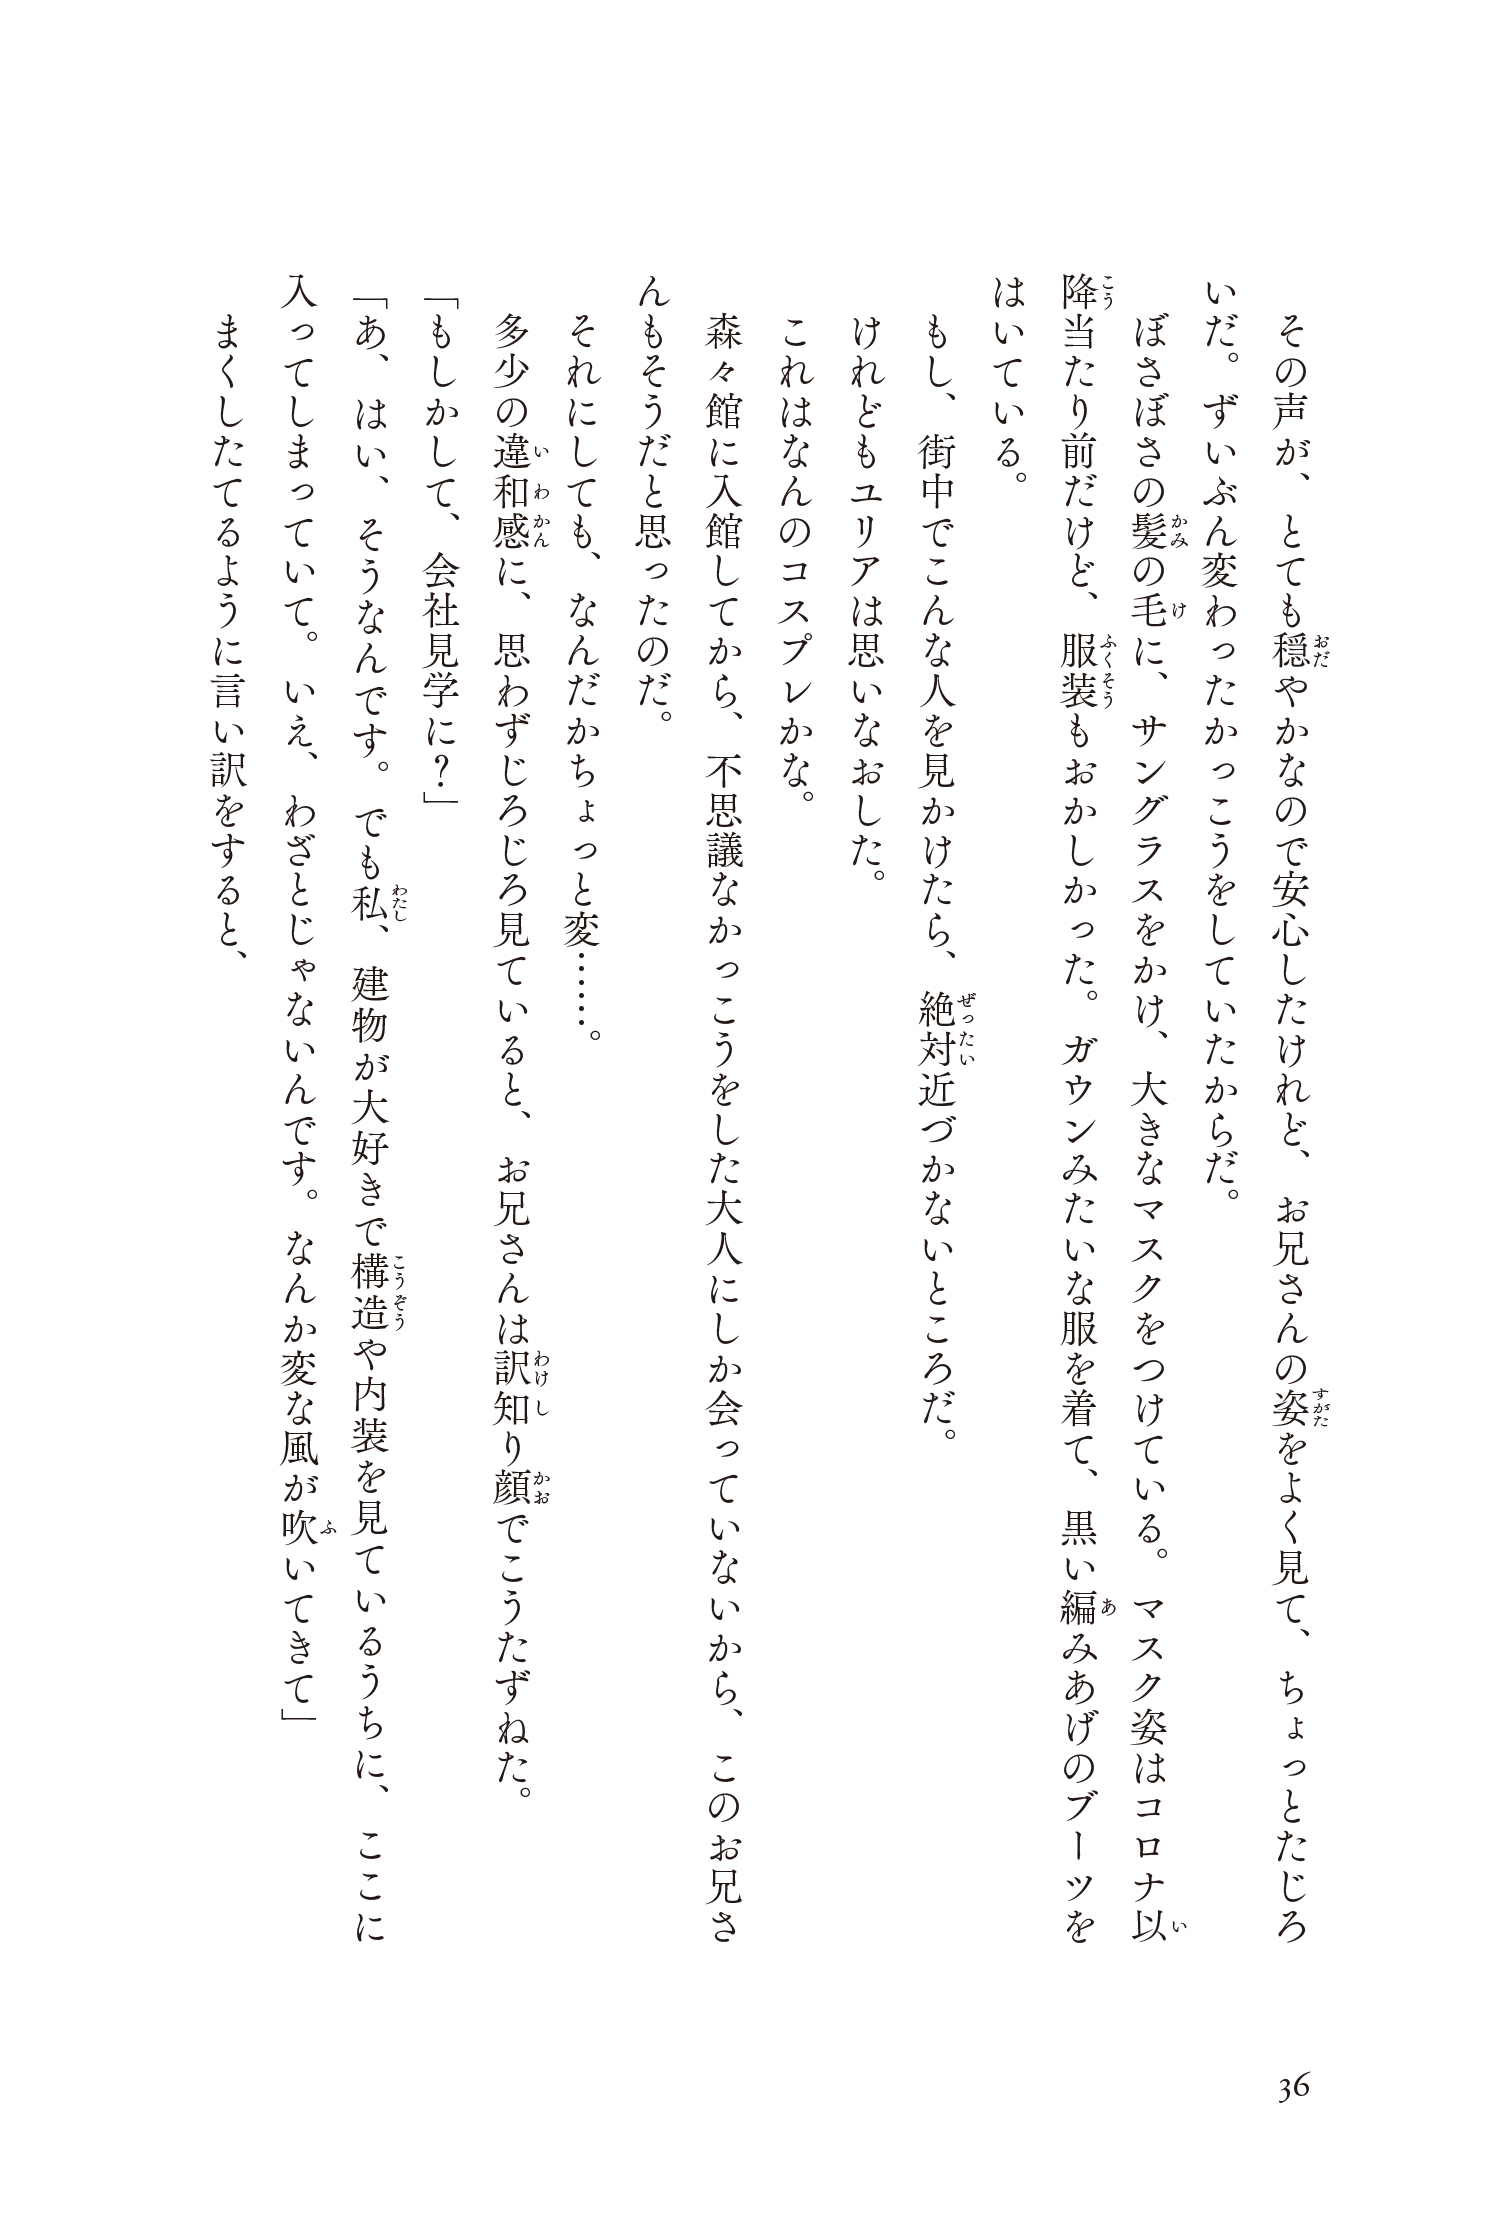 その声が、とても穏やかなので安心したけれど、お兄さんの姿をよく見て、ちょっとたじろ
いだ。ずいぶん変わったかっこうをしていたからだ。
　ぼさぼさの髪の毛に、サングラスをかけ、大きなマスクをつけている。マスク姿はコロナ以
降当たり前だけど、服装もおかしかった。ガウンみたいな服を着て、黒い編みあげのブーツを
はいている。
　もし、街中でこんな人を見かけたら、絶対近づかないところだ。
　けれどもユリアは思いなおした。
　これはなんのコスプレかな。
　森々館に入館してから、不思議なかっこうをした大人にしか会っていないから、このお兄さ
んもそうだと思ったのだ。
　それにしても、なんだかちょっと変……。
　多少の違和感に、思わずじろじろ見ていると、お兄さんは訳知り顔でこうたずねた。
「もしかして、会社見学に？」
「あ、はい、そうなんです。でも私、建物が大好きで構造や内装を見ているうちに、ここに
入ってしまっていて。いえ、わざとじゃないんです。なんか変な風が吹いてきて」
　まくしたてるように言い訳をすると、
36